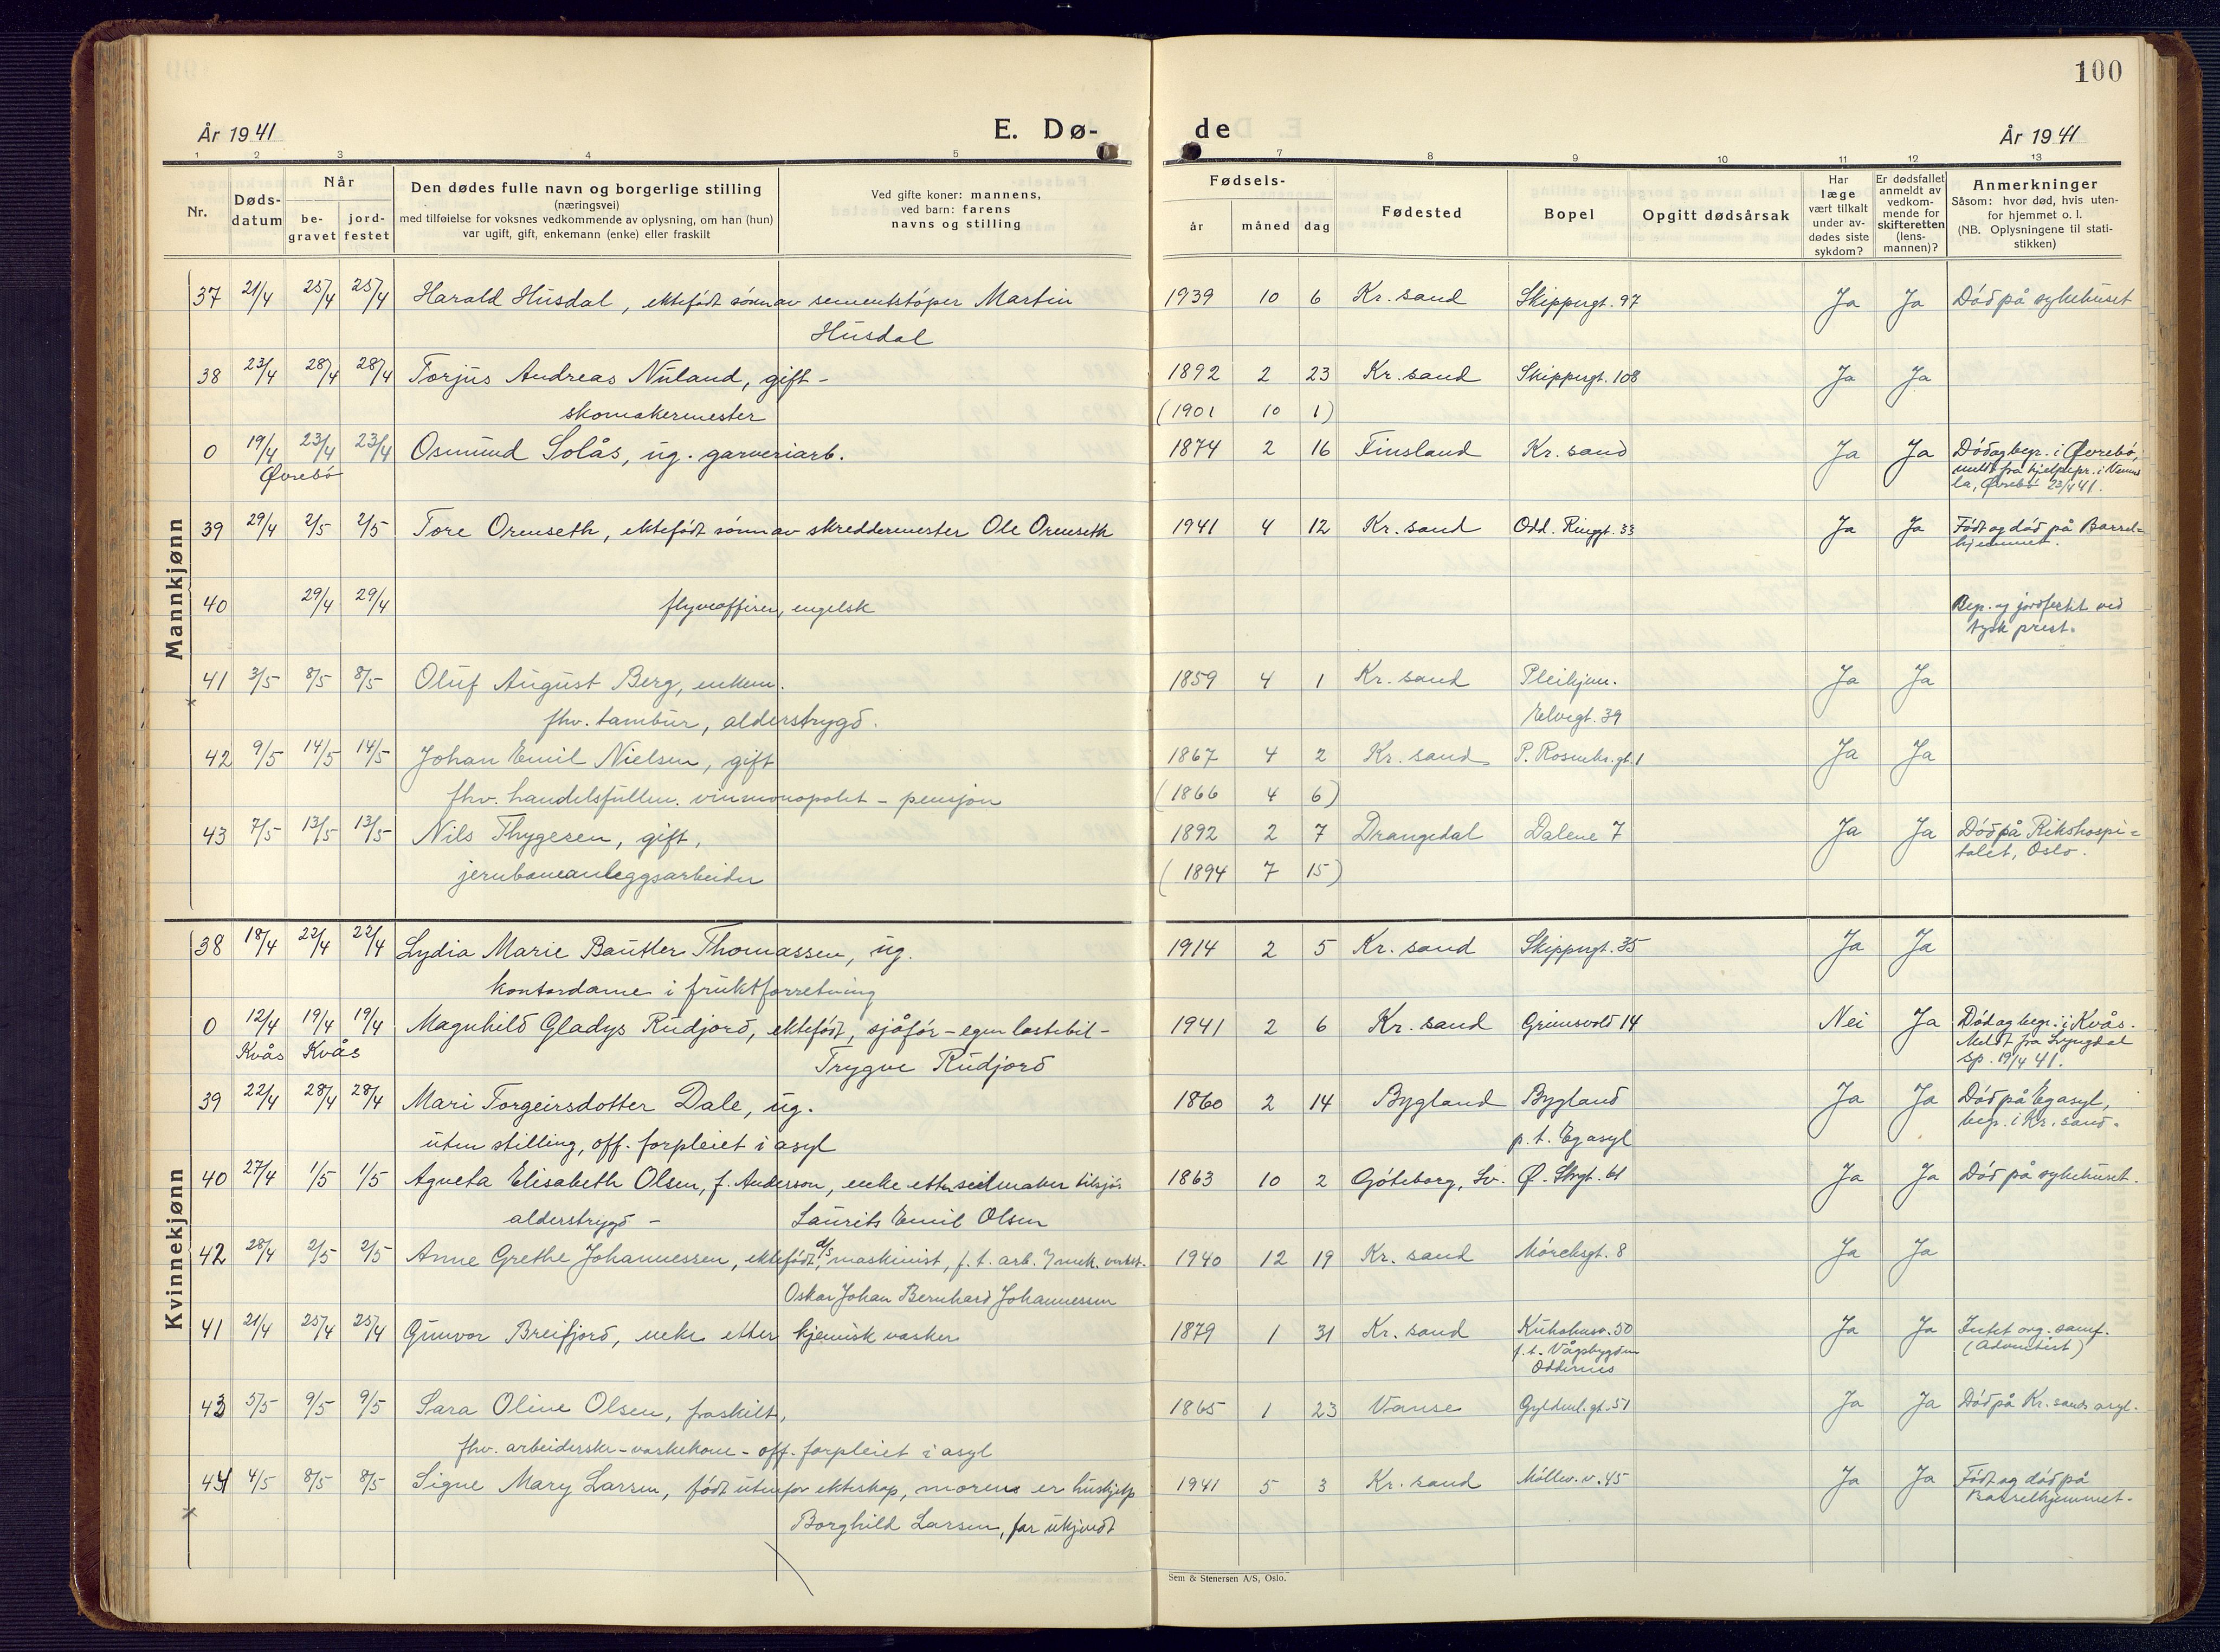 100
År 1941
E. Dø-
de
År 1941
1 2 3 4 5 7 8 9 10 11 12 13
Nr.
Døds-
datum
Når
be-
gravet
jord-
festet
Den dødes fulle navn og borgerlige stilling
(næringsvei)
med tilføielse for voksnes vedkommende av oplysning, om han (hun)
var ugift, gift, enkemann (enke) eller fraskilt
Ved gifte koner: mannens,
ved barn: farens
navns og stilling
Fødsels-
år måned dag
Fødested
Bopel
Opgitt dødsårsak
Har
læge
vært tilkalt
under av-
dødes siste
sykdom?
Er dødsfallet
anmeldt av
vedkom-
mende for
skifteretten
(lens-
mannen)?
Anmerkninger
Såsom: hvor død, hvis uten-
for hjemmet o. l.
(NB. Oplysningene til stati-
stikken)
Mannkjønn
37 21/4 25/4 25/4 Harald Húsdal, ektefødt sønn av sementstøper Martin 1939 10 6 Kr. sand Skippergt. 97 Ja Ja Død på sykehúset
Húsdal
38 23/4 28/4 28/4 Torjús Andreas Núland, gift - 1892 2 23 Kr. sand Skippergt. 108 Ja Ja
skomakermester (1901 10 1)
0 19/4 23/4 23/4 Osmúnd Solås, úg. garveriarb. 1874 2 16 Finsland Kr. sand Ja Ja Død og begr. i Øvrebø,
Øvrebø meldt fra hjelpepr. i Venns
la, Øvrebø 23/4 41.
39 29/4 2/5 2/5 Tore Ormseth, ektefødt sønn av skreddermester Ole Ormseth 1941 4 12 Kr. sand Odd. Ringgt. 33 Ja Ja Født og død på Barsel=
hjemmet.
40 29/4 29/4 flyveoffiser, engelsk Beg. og jordfestet ved
tysk prest.
41 3/5 8/5 8/5 Olúf Aúgúst Berg, enkem. 1859 4 1 Kr. sand Pleihjem. Ja Ja
x fhv. tambúr, alderstrygd. Elvegt. 39
42 9/5 14/5 14/5 Johan Emil Nielsen, gift 1867 4 2 Kr. sand P. Rosenkr. gt. 1 Ja Ja
fhv. handelsfúllm. vinmonopolet - pensjon (1866 4 6)
43 7/5 13/5 13/5 Nils Thygesen, gift, 1892 2 7 Drangedal Dalene 7 Ja Ja Død på Rikshospi=
talet, Oslo.
jernbaneanleggsarbeider (1894 7 15)
Kvinnekjønn
38 18/4 22/4 22/4 Lydia Marie Baútler Thomassen, úg. 1914 2 5 Kr. sand Skippergt. 35 Ja Ja
kontordame i frúktforretning
0 12/4 19/4 19/4 Magnhild Gladys Rúdjord, ektefødt, sjåfør - egen lastebil - 1941 2 6 Kr. sand Grimsvold 14 Nei Ja Død og begr. i Kvås.
Kvås Kvås Trygve Rúdjord Meldt fra Lyngdal
sp. 19/4 41.
39 22/4 28/4 28/4 Mari Torgeirsdotter Dale, úg. 1860 2 14 Bygland Bygland Ja Ja Død på Eg asyl,
úten stilling, off. forpleiet i asyl p. t. Eg asyl begr. i Kr. sand.
40 27/4 1/5 1/5 Agneta Elisabeth Olsen, f. Anderson, enke etter seilmaker tilsjøs 1863 10 2 Gøteborg, Sv. Ø. Strgt. 61 Ja Ja Død på sykehúset.
alderstrygd - Laúrits Emil Olsen
42 28/4 2/5 2/5 Anne Grethe Johannessen, ektefødt, d/s maskinist, f. t. arb. i mek. verkst. 1940 12 19 Kr. sand Mørchsgt. 8 Ja Ja
Oskar Johan Bernhard Johannessen
41 21/4 25/4 25/4 Gúnvor Breifjord, enke etter kjemisk vasker 1879 1 31 Kr. sand Kúholmsv. 50 Ja Ja Intet org. samf.
f. t. Vågsbygden (Adventist)
Oddernes
43 5/5 9/5 9/5 Sara Oline Olsen, fraskilt, 1865 1 23 Vanse Gyldenl. gt. 51 Ja Ja Død på Kr. sands asyl.
fhv. arbeiderske - vaskekone - off. forpleiet i asyl
44 4/5 8/5 8/5 Signe Mary Larsen, født útenfor ekteskap, moren er húshjelp 1941 5 3 Kr. sand Møllev. v. 45 Ja Ja Født og død på
x Borghild Larsen, far úkjendt Barselhjemmet.
Sem & Stenersen A/S, Oslo.